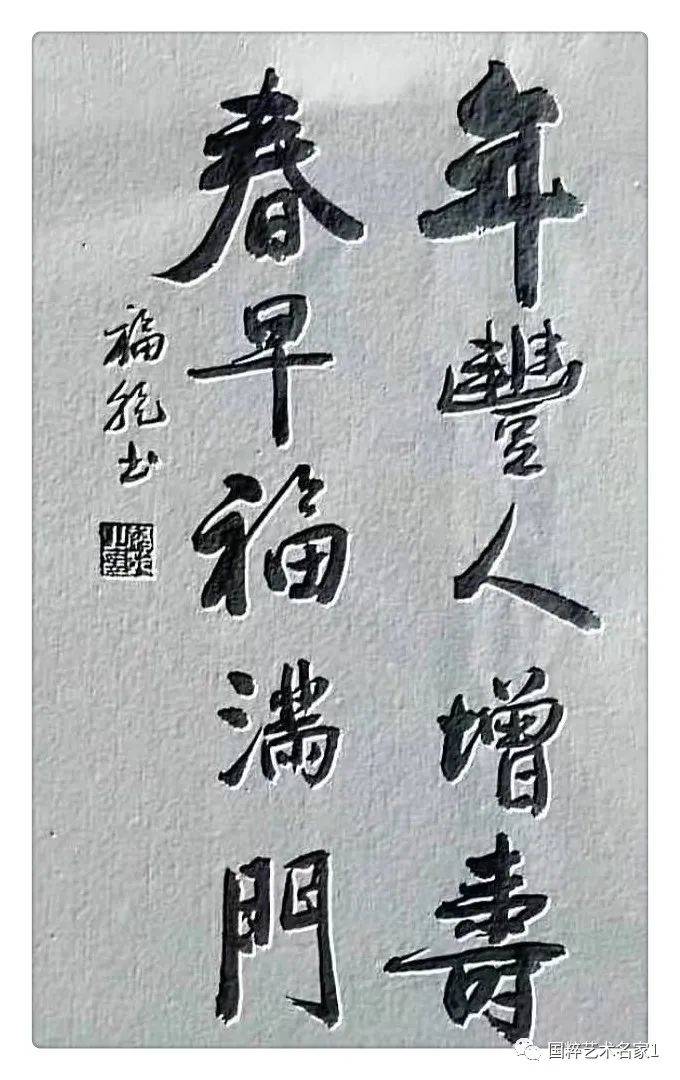 年豐人增壽
春早福滿門
福龍书
国粹艺术名家1